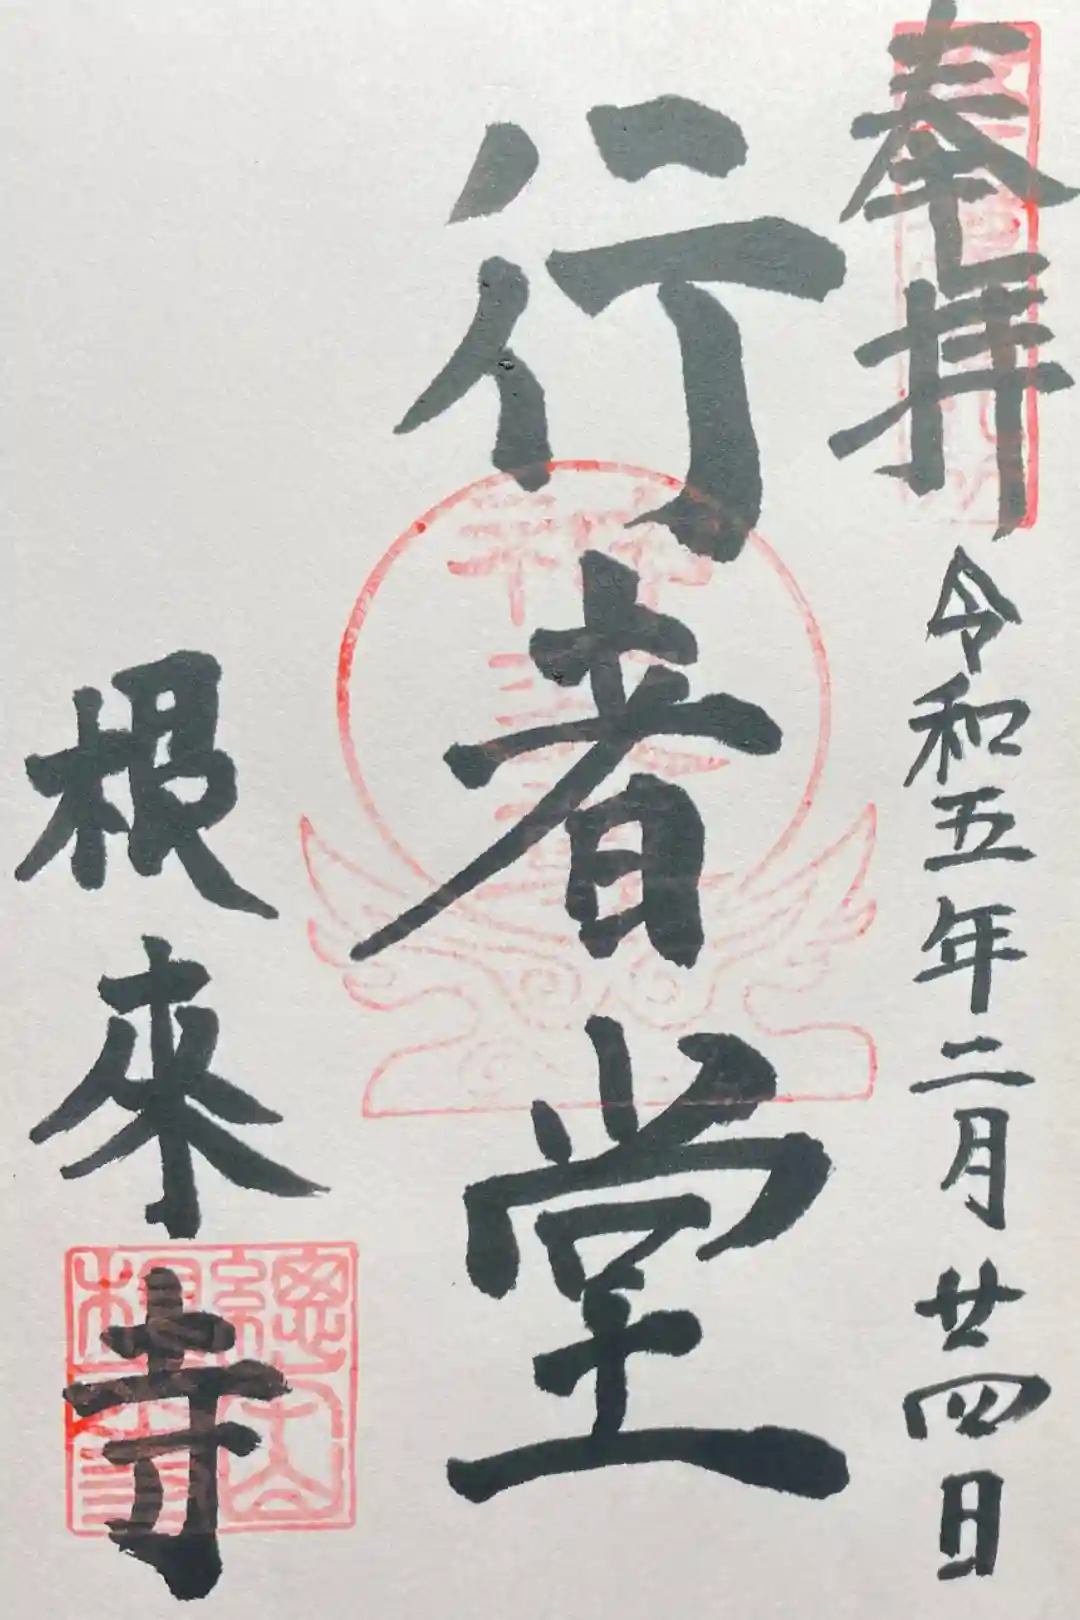 奉拝
令和五年二月廿四日
行者堂
根來寺